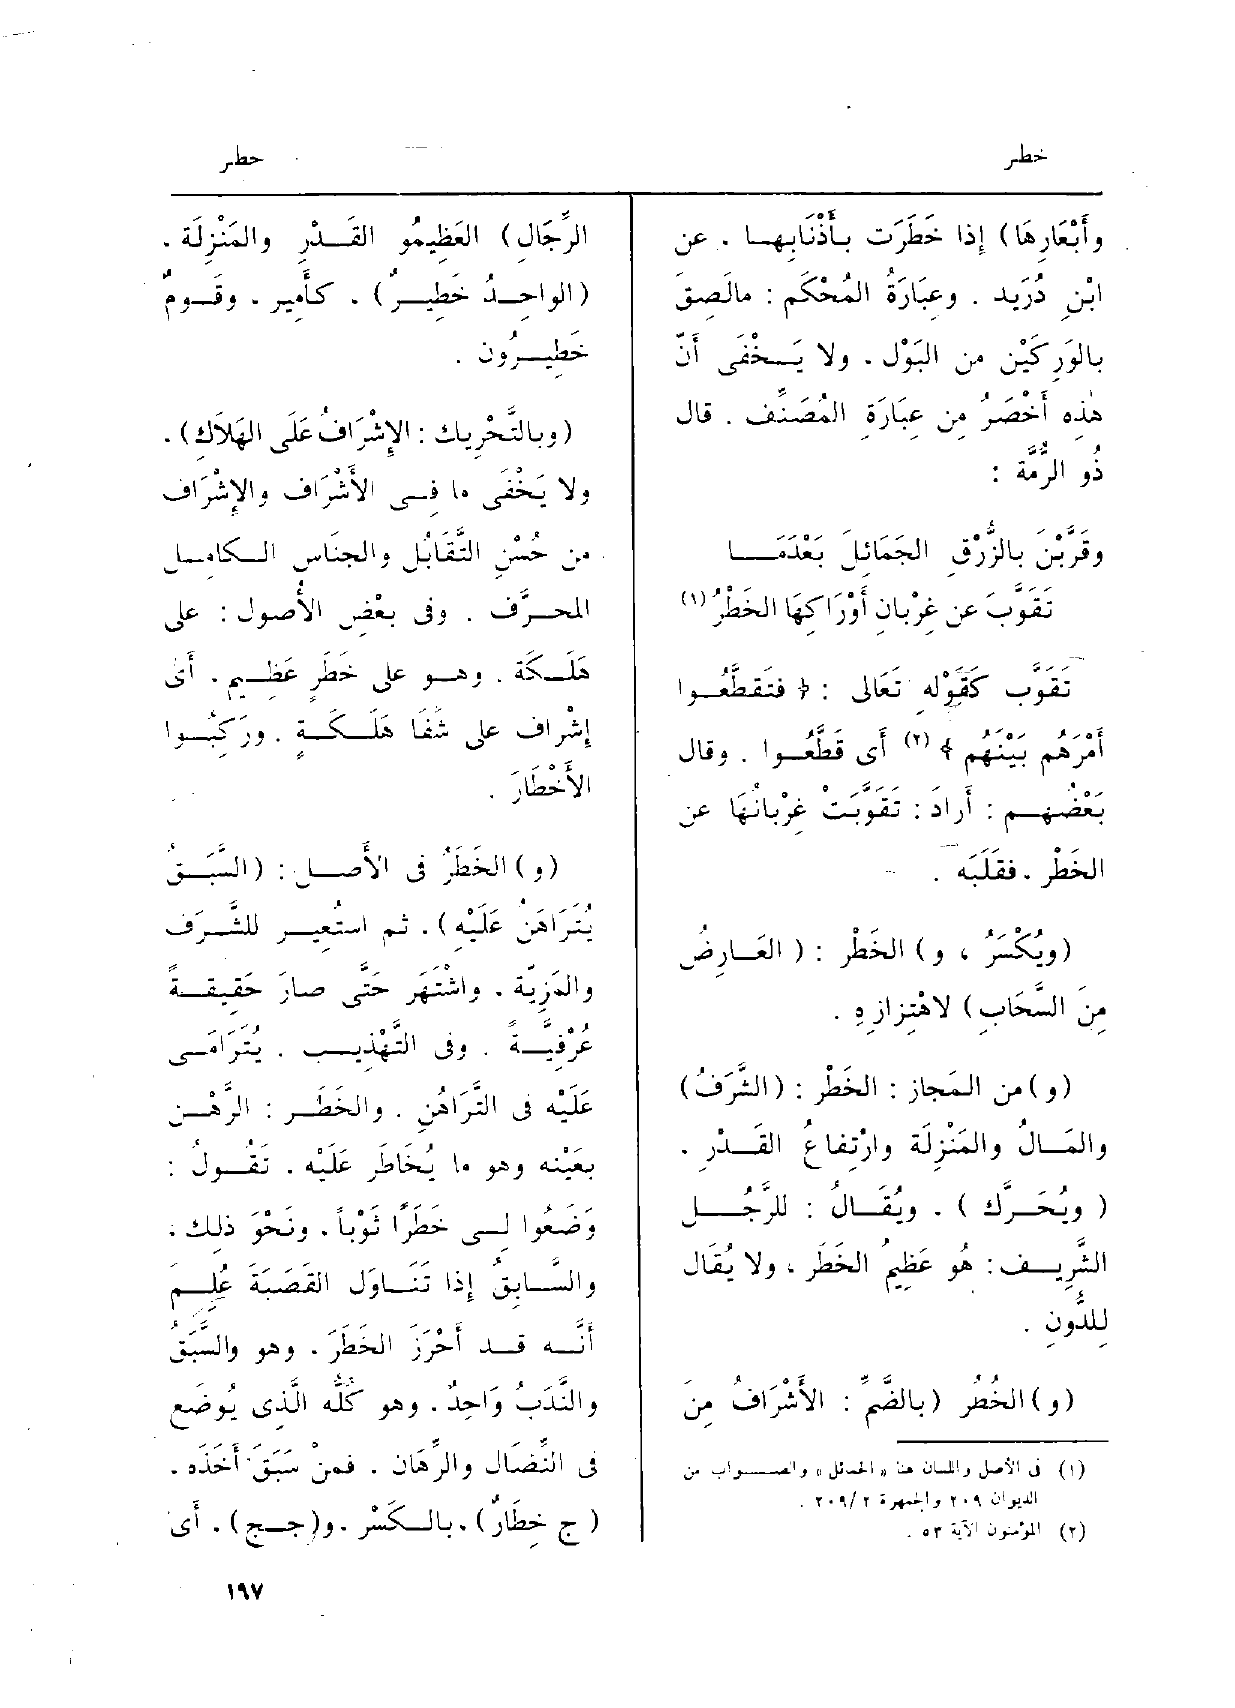 خطر
خطر
وأَبْعَارِهَا) إِذا خَطَرَت بأَذْنَابِهـا . عن
ابْنِ دُرَيد . وعِبَارَةُ المُحْكَم : مالَصِقَ
بالوَرِكَيْن من البَوْل . ولا يَـخْفَى أَنّ
هٰذِه أَخْصَرُ من عِبَارَةِ المُصَنِّف . قال
ذُو الرُّمَّة :
وقَرَّبْنَ بالزُّرْقِ الجَمَائلَ بَعْدَمَـــا
تَقَوَّبَ عن غِرْبانِ أَوْرَاكِهَا الخَطْرُ (١)
تَقَوَّب كقَوْلِه تَعَالى : ﴿ فتَقَطَّعُـوا
أَمْرَهُم بَيْنَهُم ﴾ (٢) أَى قَطَّعُـوا . وقال
بَعْضُهـم : أَرادَ : تَقَوَّبَتْ غِرْبانُهَا عن
الخَطْر . فقَلَبَه .
(ويُكْسَرُ ، و) الخَطْر : ( العَـارِضُ
مِنَ السَّحَابِ) لاهْتِزازِهِ .
(و)من المَجاز : الخَطْر : (الشَّرَفُ)
والمَـالُ والمَنْزِلَة وارْتِفاعُ القَـدْرِ .
( ويُحَرَّك ) . ويُقَـالُ : للرَّجُـلِ
الشَّرِيـف : هُو عَظِيمُ الخَطَر ، ولا يُقَال
للدُّونِ .
(و)الخُطُر (بالضَّمِّ : الأَشْرَافُ مِنَ
(١) فى الأصل واللسان هنا « الحمائل » والصـواب من
الديوان ٢٠٩ والجمهرة ٢ /٢٠٩ .
(٢) المؤمنون الآية ٥٣ .
الرِّجَالِ) العَظِيمُو القَـدْرِ والمَنْزِلَة .
(الواحِـدُ خَطِيـرٌ) . كأَمِير . وقَـومٌ
خَطِيـرُون .
(وبالتَّحْرِيك : الإِشْرَافُ عَلَى الهَلاَكِ) .
ولا يَخْفَى ما فِـى الأَشْرَاف والإِشْرَاف
من حُسْنِ التَّقَابُل والجِناسِ الـكامـل
المحـرَّف . وفى بعْضِ الأُصول : على
هَلَـكَة . وهـو على خَطَرٍ عَظِـيم . أَى
إِشْراف على شَفَا هَلَـكَـةٍ . ورَكِبُـوا
الأَخْطَارَ .
(و) الخَطَرُ فى الأَصـل : (السَّبَقُ
يُتَرَاهَنُ عَلَيْه) . ثم استُعِيـر للشَّـرَف
والمَزِيّة . واشْتَهَر حَتَّى صارَ حَقِيقـةً
عُرْفِيَّـةً . وفى التَّهْذِيـب . يُتَرَامَـى
عَلَيْه فى التَّرَاهُنِ . والخَطَـر : الرَّهْـن
بعَيْنِه وهو ما يُخَاطَر عَلَيْه . تَقُـولُ :
وَضَعُوا لِـى خَطَرًا ثَوْباً . ونَحْوَ ذلك .
والسَّـابِقُ إِذا تَنَـاوَل القَصَبَة عُلِـمَ
أَنَّـه قـد أَحْرَزَ الخَطَرَ . وهو والسَّبَقُ
والنَّدَبُ وَاحِدٌ . وهو كُلُّه الَّذِى يُوضَع
فى النِّضَال والرِّهَان . فمنْ سَبَقَ أَخَذَه .
( ج خِطَارٌ) . بالـكَسْر . و(جـج) . أَى
١٩٧